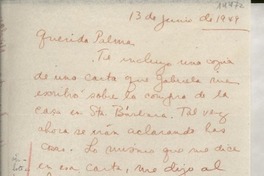 13 de Junio de 1949
Querida Palma
Te incluyo una copia
de una carta que Gabriela me
escribió sobre la compra de la
casa en Sta. Bárbara. Tal vez
ahora se irán aclarando las
cosas. Lo mismo que me dice
en esa carta, me dijo al